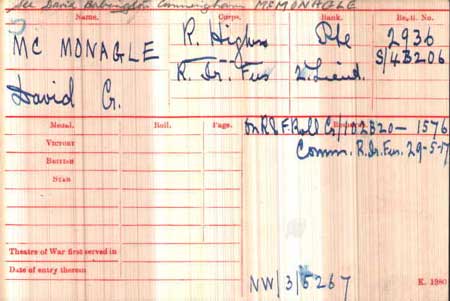 See David Babington Cunningham MCMONAGLE
Name. Corps. Rank. Regtl. No.
MC MONAGLE R. Highrs Pte 2936
S/43206
David C. R. Ir. Fus 2. Lieut.
Medal. Roll. Page.
On R.S.F. Roll 1576
VICTORY Comm. R. Ir. Fus. 29-5-17
BRITISH
STAR
Theatre of War first served in
Date of entry therein
NW/3/5267 K. 1380